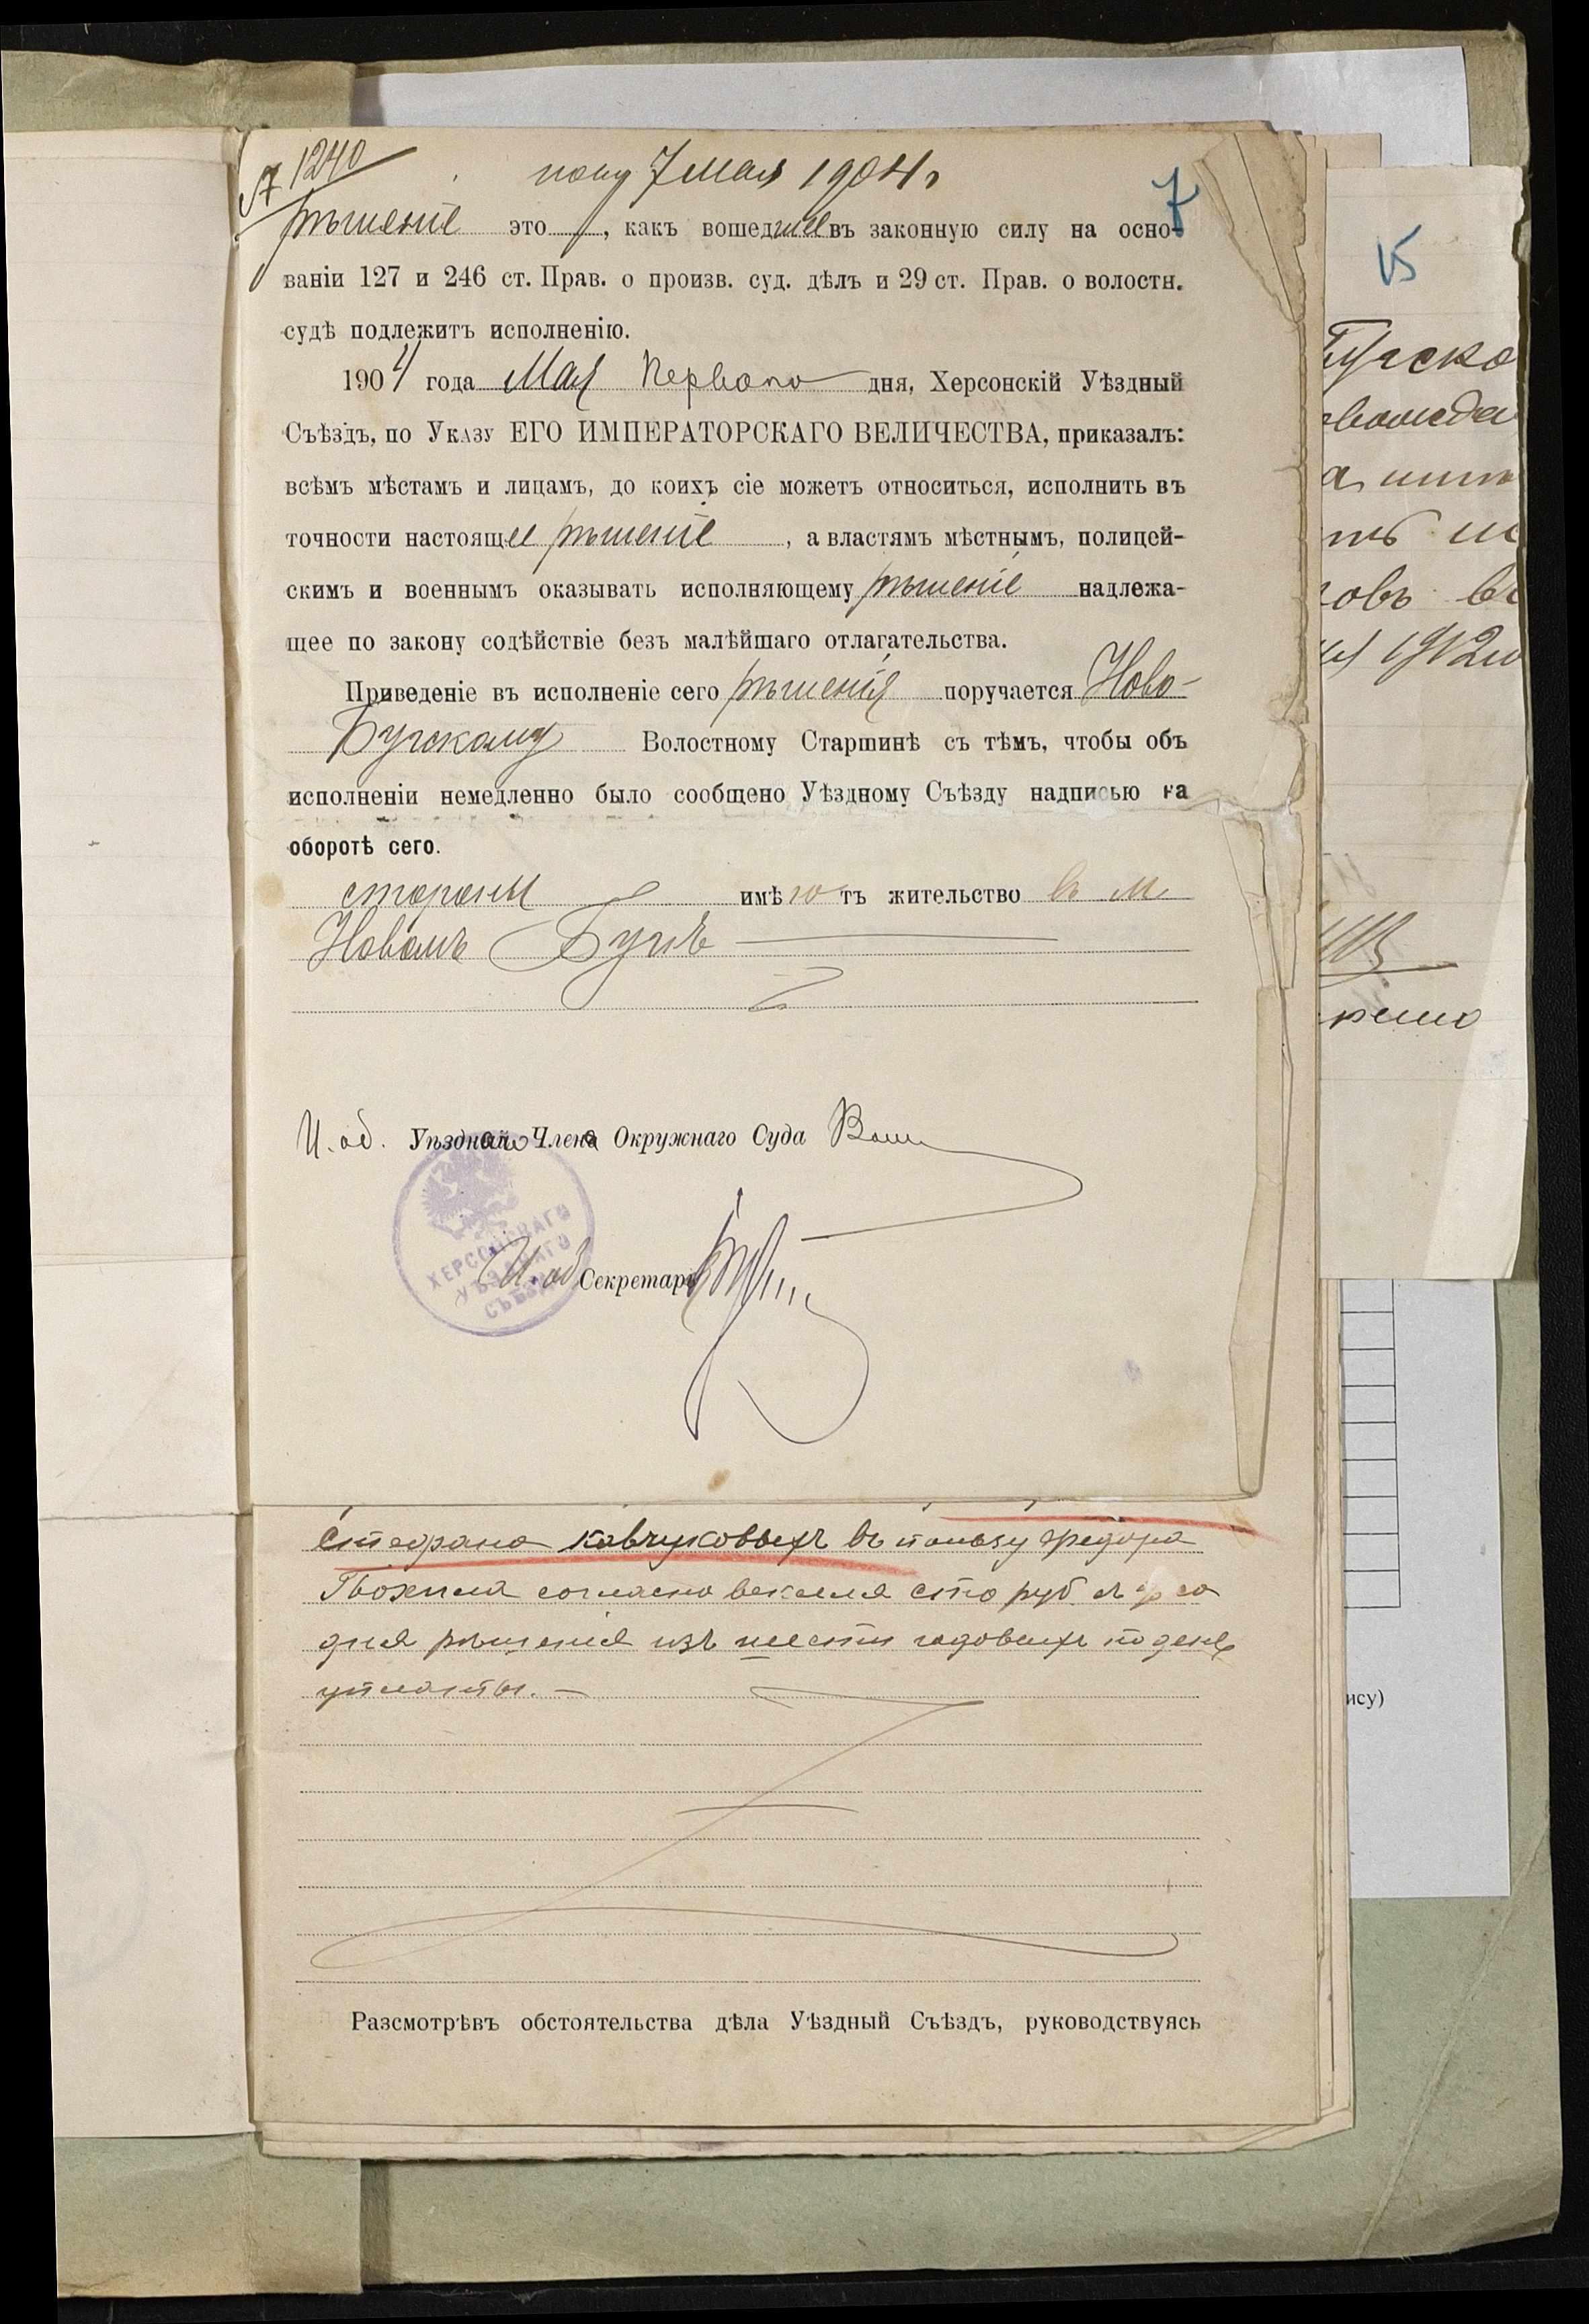 № 1240
полу 7 мая 1904 г
7
рѣшеніе это, какъ вошедшее въ законную силу на осно-
ваніи 127 и 246 ст. Прав. о произв. суд. дѣлъ и 29 ст. Прав. о волостн.
судѣ подлежитъ исполненію.
1904 года Мая Перваго дня, Херсонскій Уѣздный
Съѣздъ, по Указу ЕГО ИМПЕРАТОРСКАГО ВЕЛИЧЕСТВА, приказалъ:
всѣмъ мѣстамъ и лицамъ, до коихъ сіе можетъ относиться, исполнить въ
точности настоящее рѣшеніе, а властямъ мѣстнымъ, полицей-
скимъ и военнымъ оказывать исполняющему рѣшеніе надлежа-
щее по закону содѣйствіе безъ малѣйшаго отлагательства.
Приведеніе въ исполненіе сего рѣшенія поручается Ново-
Бугскому Волостному Старшинѣ съ тѣмъ, чтобы объ
исполненіи немедленно было сообщено Уѣздному Съѣзду надписью на
оборотѣ сего.
стороны имѣютъ жительство въ м.
Новомъ Бугѣ
И. об. Уѣзднаго Члена Окружнаго Суда
ХЕРСОНСКАГО
УѢЗДНАГО
СЪѢЗДА
И. об. Секретаря
Стефана Ковчуковыхъ въ пользу Федора
согласно векселя сто руб. съ % со
дня рѣшенія изъ шести годовыхъ по день
уплаты. —
Разсмотрѣвъ обстоятельства дѣла Уѣздный Съѣздъ, руководствуясь
15
овъ въ
1912 г
ису)